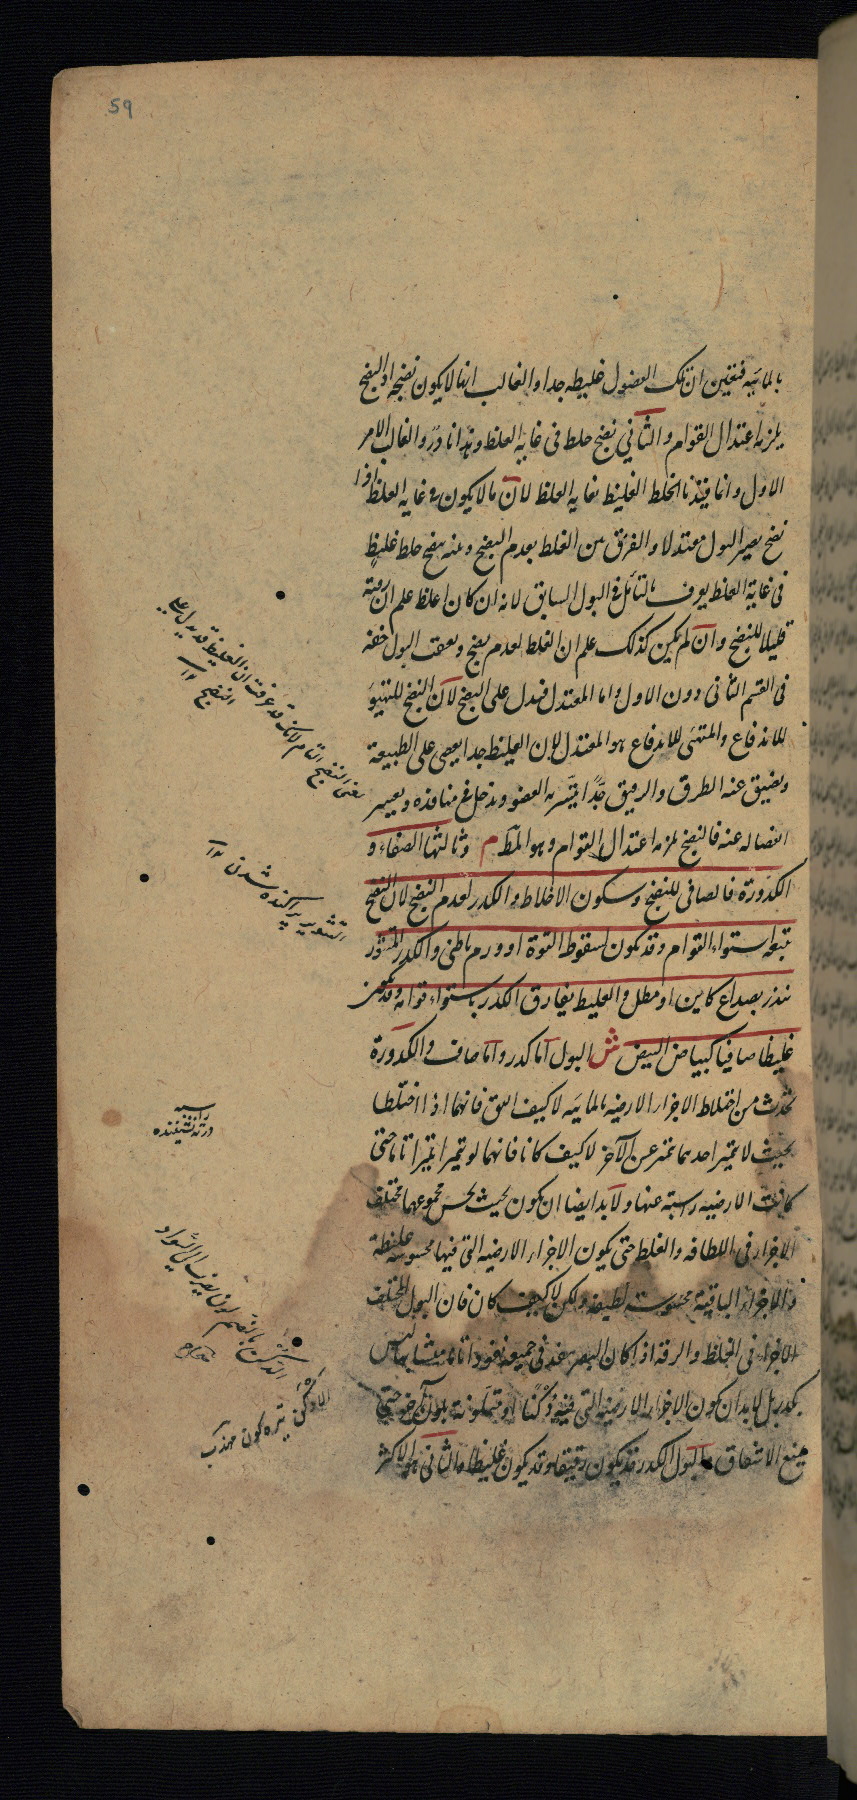 59
بالمائیه فتعین ان تلک الفضول غلیظه جدا والغالب انها لایکون نضجه اذ النضج
یلزمه اعتدال القوام والثانی نضج خلط فی غایة الغلظ وهذا نادر والغالب الامر
الاول وانما قیدنا الخلط الغلیظ بغایه الغلظ لان مالایکون فی غایه الغلظ اذا
نضج یصیر البول معتدلا والفرق بین الغلظ بعدم النضج ومنه بنضج خلط غلیظ
فی غایة الغلظ یعرف بالتأمل فی البول السابق لانه ان کان اغلظ علم ان
قلیلا للنضج وان لم یکن کذلک علم ان الغلظ لعدم نضج ویعقب البول خفه
فی القسم الثانی دون الاول واما المعتدل فیدل علی النضج لان النضج للتهیؤ
للاندفاع والمتهیئ للاندفاع هو المعتدل لان الغلیظ جدا یعصی علی الطبیعة
ویضیق عنه الطرق والرقیق جدا یتشربه العضو ویدخل فی منافذه ویعسر
انفصاله عنه فالنضج یلزمه اعتدال القوام وهو المط م وثالثها الصفاء و
الکدورة فالصافی للنضج وسکون الاخلاط والکدر لعدم النضج لان النضج
یتبعه استواء القوام وقد یکون لسقوط القوة او ورم باطنی والکدر المتثور
ینذر بصداع کاین او مطل والغلیظ یفارق الکدر باستواء قوامه وقد یکون
غلیظا صافیا کبیاض البیض ش البول اما کدر واما صاف والکدورة
تحدث من اختلاط الاجزاء الارضیه بالمائیه لا کیف اتفق فانهما اذا اختلطا
بحیث لا یتمیز احدهما تمیز عن الآخر لا کیف کانا فانهما لو تمیزا تمیزا تاما حتی
کانت الارضیه راسبة عنها ولابد ایضا ان یکون بحیث یحس مجموعهما مختلف
الاجزاء فی اللطافه والغلظ حتی یکون الاجزاء الارضیه التی فیها محسوسه غلیظة
والاجزاء الباقیة محسوسه لطیفه ولکن لا کیف کان فان البول المختلف
الاجزاء فی الغلظ والرقه اذا کان البصر ینفذ فی جمیعه نفوذا تاما متشابها لیس
بکدر بل لابد ان یکون الاجزاء الارضیه التی فیه دکنا او متلونة بلون آخر حتی
یمنع الاشفاف والبول الکدر قد یکون رقیقا وقد یکون غلیظا والثانی هو الاکثر
یعنی النضج التام لانک قد عرفت ان الغلیظ قد یدل علی
النضج ۱۲
التثویر پراکنده شدن ۱۲
راسبه
درته نشیننده
الدکنة بالضم لون یضرب الی السواد
صراح
الادکن تیره کون مهذب